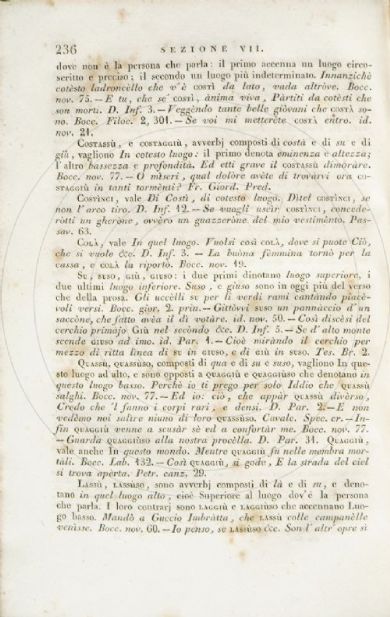 236 SEZIONE VII.
dove non è la persona che parla: il primo accenna un luogo circo-
scritto e preciso; il secondo un luogo più indeterminato. Innanzichè
cotèsto ladroncèllo che v'è COSTÌ da lato, vada altròve. Bocc.
nov. 75. — E tu, che se' COSTÌ, ànima viva, Pàrtiti da cotèsti che
son morti. D. Inf. 3. — Veggèndo tante belle giòvani che COSTÀ so-
no. Bocc. Filoc. 2, 301. — Se voi mi metterète COSTÀ entro. id.
nov. 21.
COSTASSÙ, e COSTAGGIÙ, avverbj composti di costà e di su e di
giù, vagliono In cotesto luogo: il primo denota eminenza e altezza;
l'altro bassezza e profondità. Ed etti grave il COSTASSÙ dimoràre.
Bocc. nov. 77. — O mìseri, qual dolòre avète di trovàrvi ora CO-
STAGGIÙ in tanti tormènti? Fr. Giord. Pred.
COSTÌNCI, vale Di Costì, di cotesto luogo. Ditel COSTÌNCI, se
non l'arco tiro. D. Inf. 12. — Se vuagli uscìr COSTÌNCI, concede-
ròtti un gheròne, ovvèro un guazzeròne del mio vestimènto. Pas-
sav. 63.
COLÀ, vale In quel luogo. Vuolsi così COLÀ, dove si puote Ciò,
che si vuole &c. D. Inf. 3. — La buòna fèmmina tornò per la
cassa, e COLÀ la riportò. Bocc. nov. 49.
SU, SUSO, GIÙ, GIUSO: i due primi dinotano luogo superiore, i
due ultimi luogo inferiore. Suso, e giuso sono in oggi più del verso
che della prosa. Gli uccèlli SU per li verdi rami cantàndo piacè-
voli versi. Bocc. gior. 2. prin. — Gittòvvi SUSO un pannàccio d'un
saccòne, che fatto avèa il dì votàre. id. nov. 50. — Così discèsi del
cerchio primàjo GIÙ nel secòndo &c. D. Inf. 5. — Se d'alto monte
scende GIUSO ad imo. id. Par. 1. — Cioè miràndo il cerchio per
mezzo di ritta lìnea di SU in GIUSO, e di GIÙ in SUSO. Tes. Br. 2.
QUASSÙ, QUASSÙSO, composti di qua e di su e suso, vagliono In que-
sto luogo ad alto, e sono opposti a QUAGGIÙ e QUAGGIÙSO che denotano in
questo luogo basso. Perchè io ti prego per solo Iddio che QUASSÙ
salghi. Bocc. nov. 77. — Ed io: ciò, che appàr QUASSÙ divèrso,
Credo che 'l fanno i corpi rari, e densi. D. Par. 2. — E non
vedèmo noi salìre niuno di loro QUASSÙSO. Cavalc. Spec. cr. — In-
fin QUAGGIÙ venne a scusàr sè ed a confortàr me. Bocc. nov. 77.
— Guarda QUAGGIÙSO alla nostra procèlla. D. Par. 31. QUAGGIÙ,
vale anche In questo mondo. Mentre QUAGGIÙ fu nelle membra mor-
tali. Bocc. Lab. 132. — Così QUAGGIÙ, si gode, E la strada del ciel
si trova aperta. Petr. canz. 29.
LASSÙ, LASSÙSO, sono avverbj composti di là e di su, e deno-
tano in quel luogo alto, cioè Superiore al luogo dov'è la persona
che parla. I loro contrarj sono LAGGIÙ e LAGGIUSO che accennano Luo-
go basso. Mandò a Guccio Imbràtta, che LASSÙ colle campanèlle
venìsse. Bocc. nov. 60. — Io penso, se LASSÙSO &c. Son l'altr'opre sì